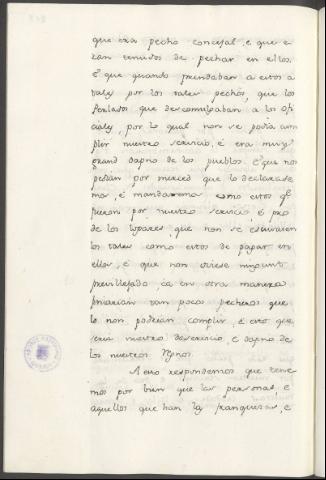 que era pecho concejal, e que e
ran tenudos de pechar en ellos.
E que quando prendaban a estos a
tales por los tales pechos, que los
Perlados que descomulgaban a los ofi
ciales, por lo qual non se podia cum
plir nuestro servicio, e era muy
grand dapno de los pueblos. E que nos
pedian por merced que lo declarase
mos, e mandasemos como estos
por nuestro servicio, e pro
de los logares, que non se escusasen
los tales como estos de pagar en
ellos, e que non oviese ninguno
previllejado ca en otra manera
fincarian tan pocos pecheros que
lo non podrian complir, e esto que
era nuestro deservicio, e dapno de
los nuestros Rgnos.
A esto respondemos que tene
mos por bien que las personas, e
aquellos que han las franquezas, e